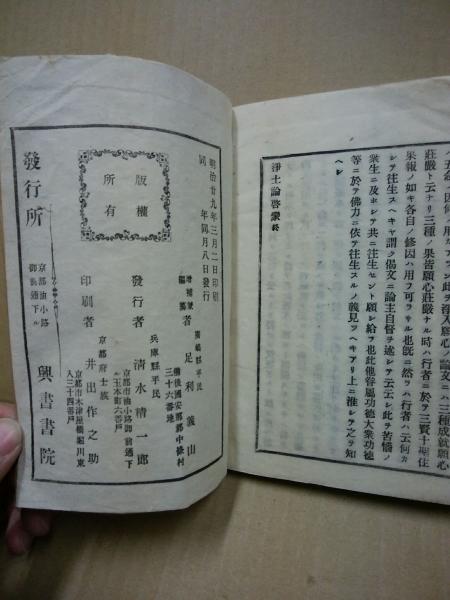 莊嚴ト云ナリ三種ノ果皆願心莊嚴ナル時ハ行者ニ於テ三賢十地住
果報ノ如キ各自ノ修因ハ用フ可ラサル也既ニ然ラハ行者ハ云何カ
シテ往生スヘキヤ謂ク偈文ニ論主自督ヲ述シテ云云シ此ヲ苦惱ノ
衆生ニ及ホシテ共ニ往生セント願シ給フ也此他眷屬功德大業功德
等ニ於テ佛力ニ依テ往生スルノ義見フヘキアリ上ニ準シテ之ヲ知
ヘシ
淨土論啓蒙終
版權
所有
明治廿九年三月二日印刷
同年同月八日發行
增補兼
編纂者
廣島縣平民
足利義山
備後國安那郡中條村
三十六番地
發行者
兵庫縣平民
清水精一郎
京都市油小路御前通下
ル玉本町六番戶
印刷者
京都府士族
井出作之助
京都市木津屋橋堀川東
入三十四番戶
發行所
京都油小路
御前通下ル
興書書院